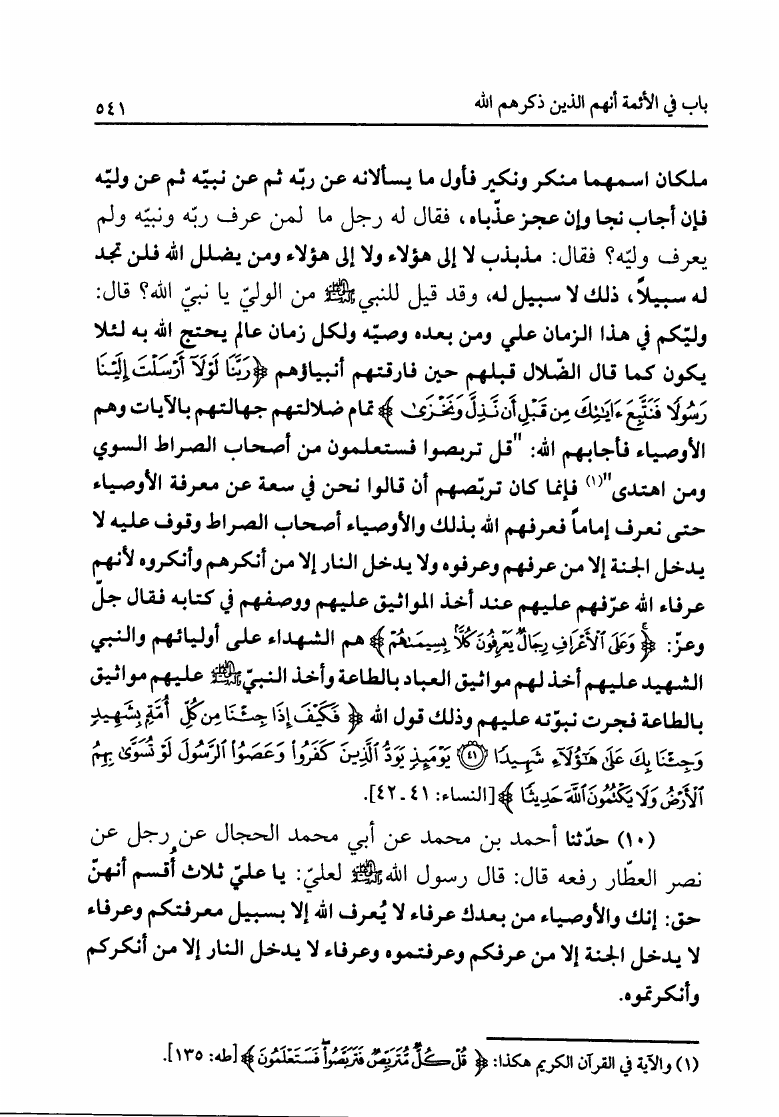 باب في الأئمة أنهم الذين ذكرهم الله ٥٤١
ملكان اسمهما منكر ونكير فأول ما يسألانه عن ربّه ثم عن نبيّه ثم عن وليّه
فإن أجاب نجا وإن عجز عذّباه، فقال له رجل ما لمن عرف ربّه ونبيّه ولم
يعرف وليّه؟ فقال: مذبذب لا إلى هؤلاء ولا إلى هؤلاء ومن يضلل الله فلن تجد
له سبيلاً، ذلك لا سبيل له، وقد قيل للنبي ﷺ من الوليّ يا نبيّ الله؟ قال:
وليّكم في هذا الزمان علي ومن بعده وصيّه ولكل زمان عالم يحتج الله به لئلا
يكون كما قال الضّلال قبلهم حين فارقتهم أنبياؤهم ﴿رَبَّنَا لَوْلَآ أَرْسَلْتَ إِلَيْنَا
رَسُولًا فَنَتَّبِعَ ءَايَٰتِكَ مِن قَبْلِ أَن نَّذِلَّ وَنَخْزَىٰ﴾ تمام ضلالتهم جهالتهم بالآيات وهم
الأوصياء فأجابهم الله: "قل تربصوا فستعلمون من أصحاب الصراط السوي
ومن اهتدى"(١) فإنما كان تربّصهم أن قالوا نحن في سعة عن معرفة الأوصياء
حتى نعرف إماماً فعرفهم الله بذلك والأوصياء أصحاب الصراط وقوف عليه لا
يدخل الجنة إلا من عرفهم وعرفوه ولا يدخل النار إلا من أنكرهم وأنكروه لأنهم
عرفاء الله عرّفهم عليهم عند أخذ المواثيق عليهم ووصفهم في كتابه فقال جلّ
وعزّ: ﴿وَعَلَى ٱلْأَعْرَافِ رِجَالٌ يَعْرِفُونَ كُلًّۢا بِسِيمَىٰهُمْ﴾ هم الشهداء على أوليائهم والنبي
الشهيد عليهم أخذ لهم مواثيق العباد بالطاعة وأخذ النبيّ ﷺ عليهم مواثيق
بالطاعة فجرت نبوّته عليهم وذلك قول الله ﴿فَكَيْفَ إِذَا جِئْنَا مِن كُلِّ أُمَّةٍۭ بِشَهِيدٍ
وَجِئْنَا بِكَ عَلَىٰ هَٰٓؤُلَآءِ شَهِيدًا ﴿٤١﴾ يَوْمَئِذٍ يَوَدُّ ٱلَّذِينَ كَفَرُوا۟ وَعَصَوُا۟ ٱلرَّسُولَ لَوْ تُسَوَّىٰ بِهِمُ
ٱلْأَرْضُ وَلَا يَكْتُمُونَ ٱللَّهَ حَدِيثًا﴾ [النساء: ٤١ ـ ٤٢].
(١٠) حدّثنا أحمد بن محمد عن أبي محمد الحجال عن رجل عن
نصر العطّار رفعه قال: قال رسول الله ﷺ لعليّ: يا عليّ ثلاث أُقسم أنهنّ
حق: إنك والأوصياء من بعدك عرفاء لا يُعرف الله إلا بسبيل معرفتكم وعرفاء
لا يدخل الجنة إلا من عرفكم وعرفتموه وعرفاء لا يدخل النار إلا من أنكركم
وأنكرتموه.
(١) والآية في القرآن الكريم هكذا: ﴿قُلْ كُلٌّ مُّتَرَبِّصٌ فَتَرَبَّصُوا۟ فَسَتَعْلَمُونَ﴾ [طه: ١٣٥].